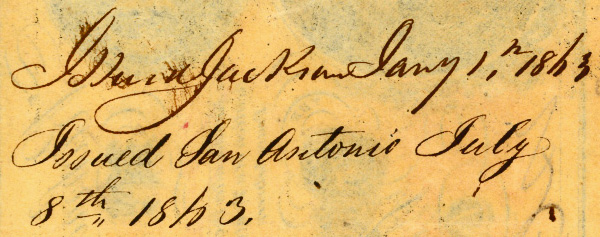 Issued Jackson Jany 1,st 1863
Issued San Antonio July
8th 1863.